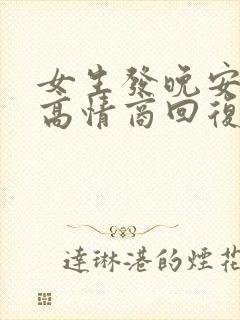 女生發晚安
高情商回復
達琳港的煙花